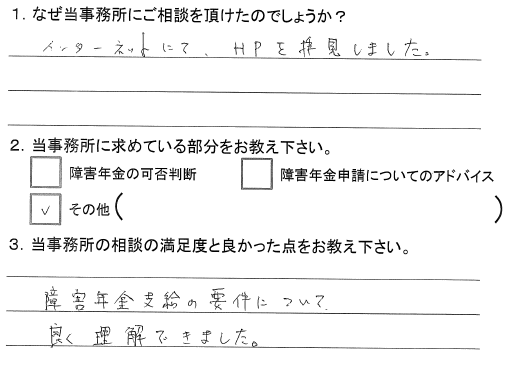 1. なぜ当事務所にご相談を頂けたのでしょうか？
インターネットにて、HPを拝見しました。
2. 当事務所に求めている部分をお教え下さい。
障害年金の可否判断 障害年金申請についてのアドバイス
✓ その他( )
3. 当事務所の相談の満足度と良かった点をお教え下さい。
障害年金支給の要件について
良く理解できました。